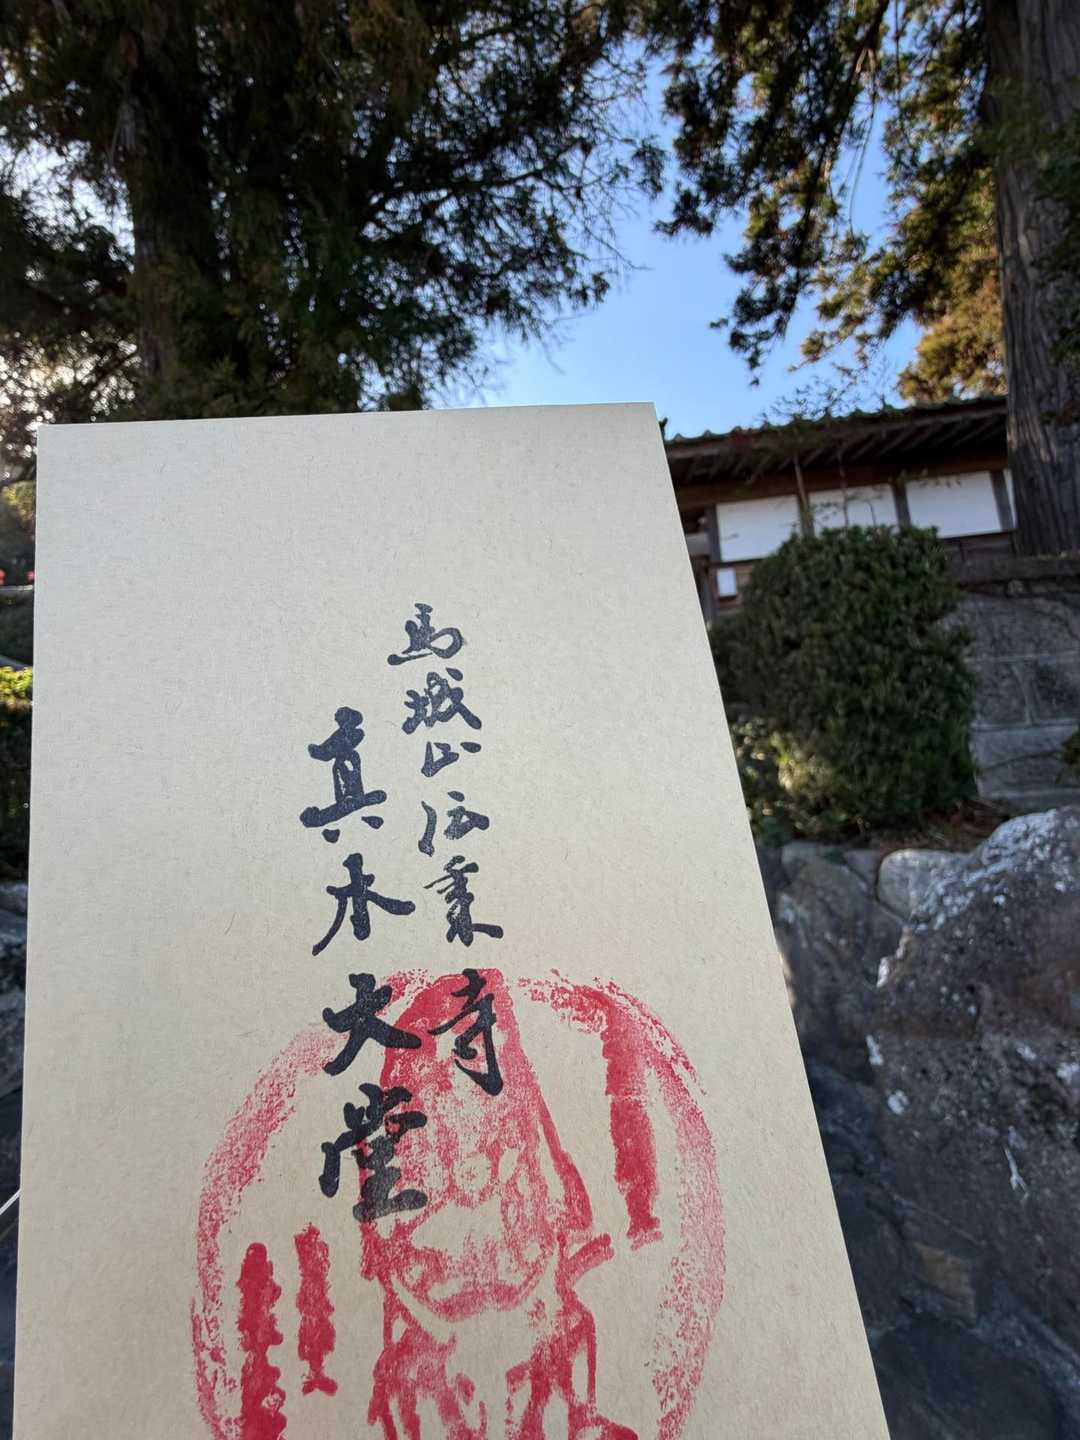 馬城山伝乗寺
真木大堂